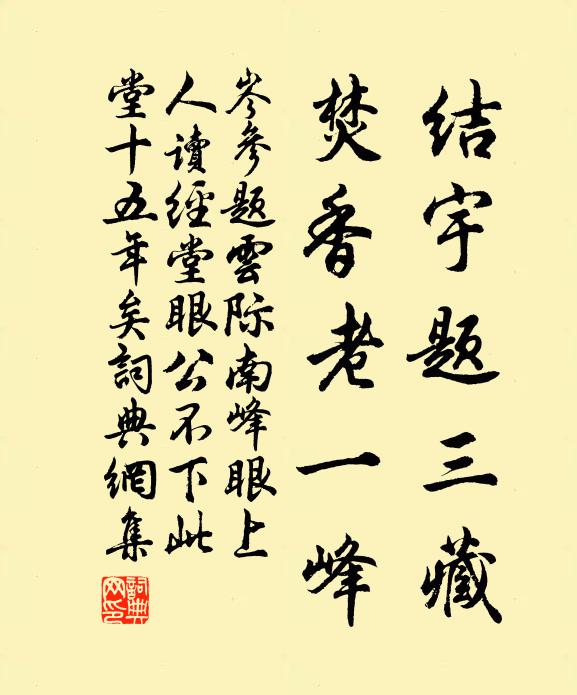 结宇题三藏
焚香老一峰
岑參题雲际南峰眼上
人讀經堂眼公不下此
堂十五年矣詞典網集
詞典网印